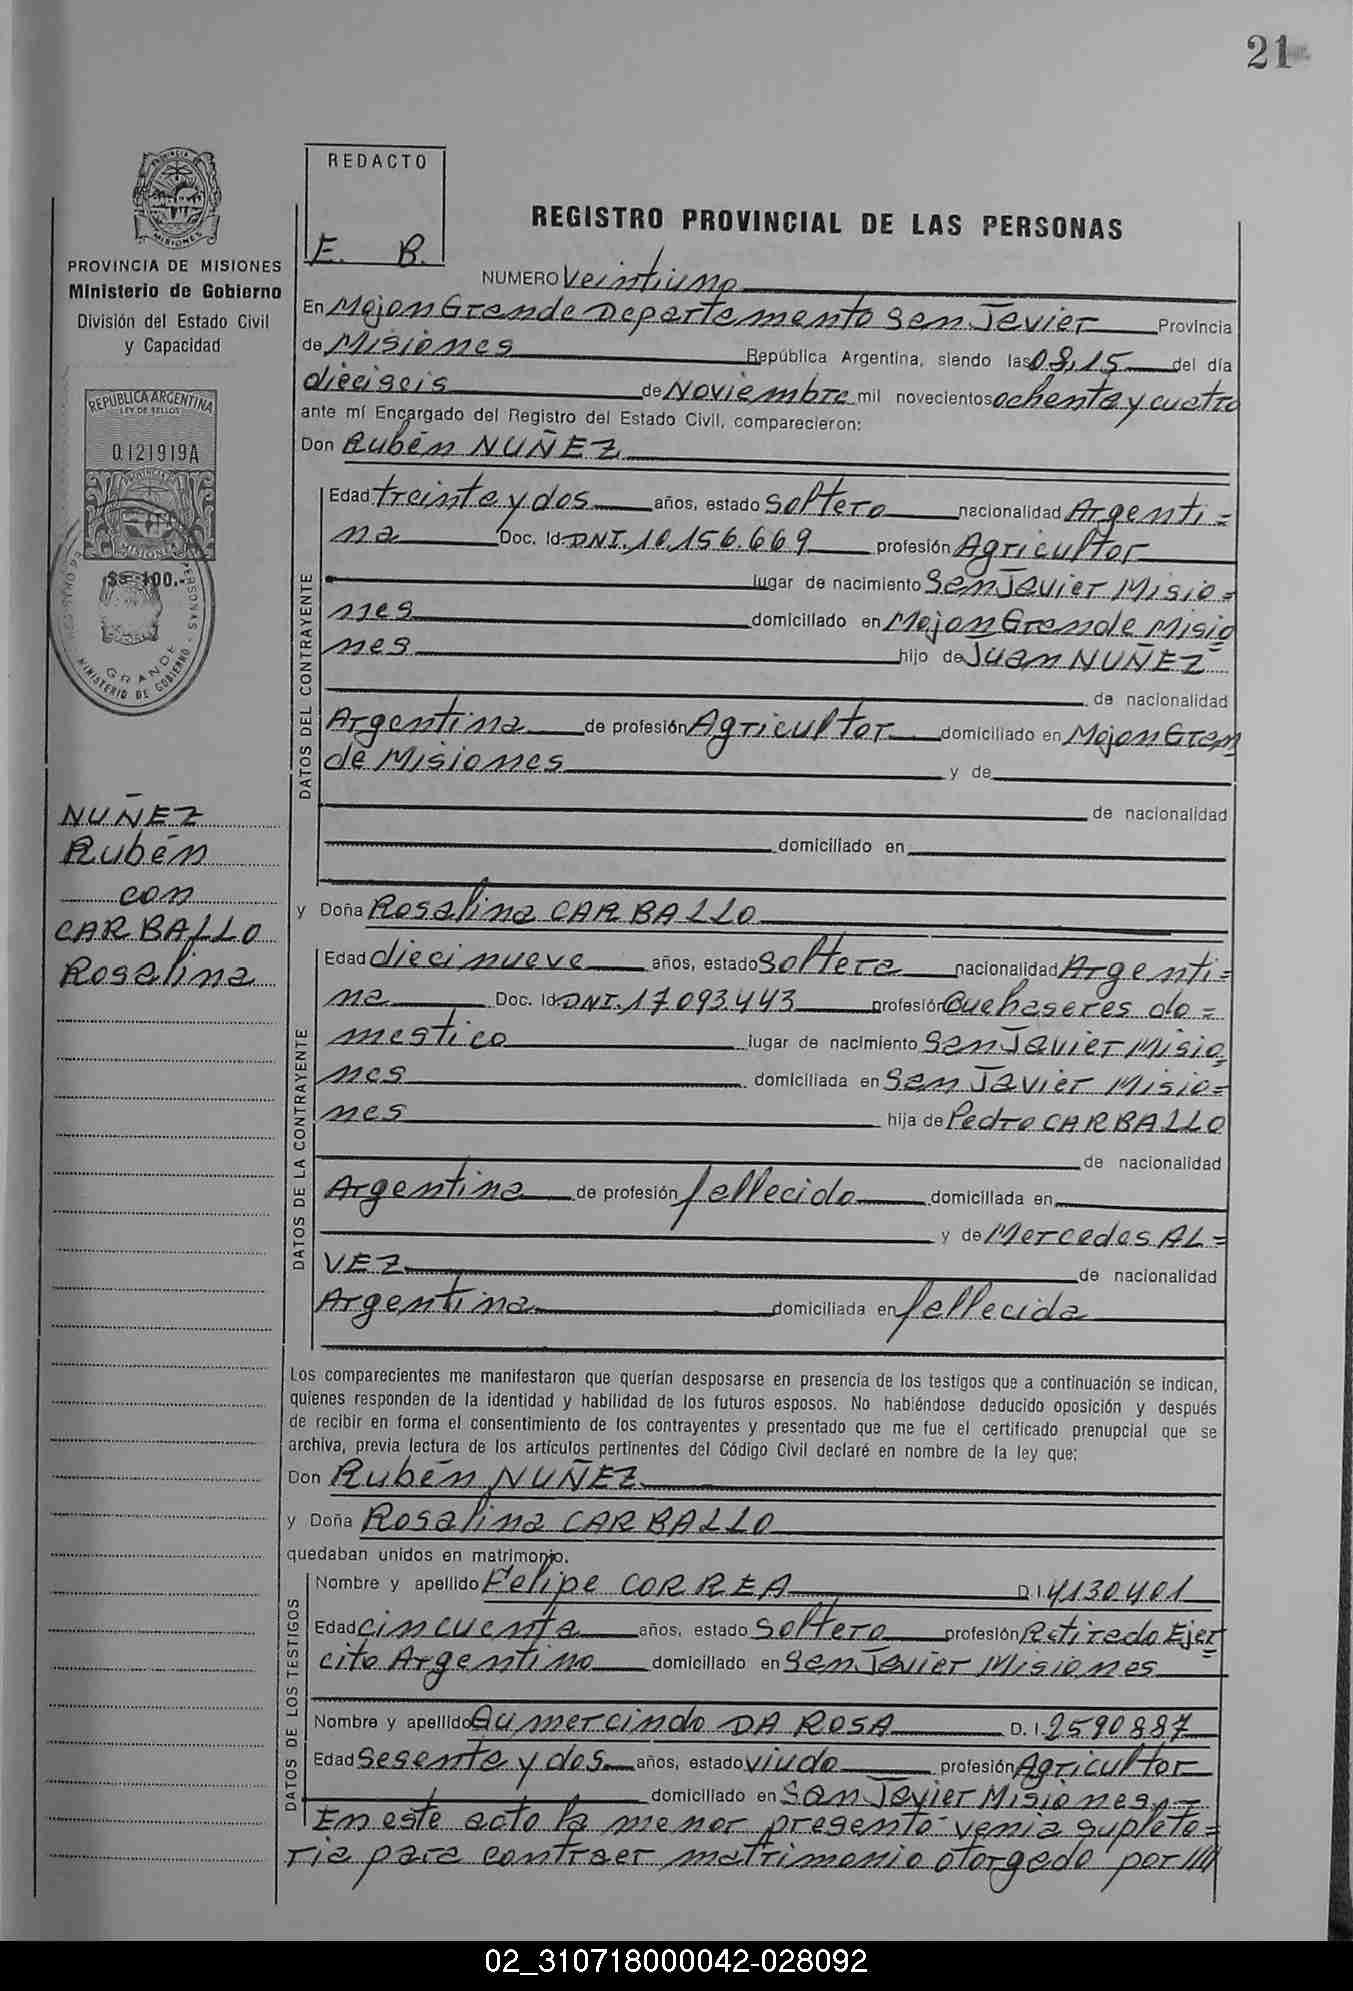 21
REDACTO
E. B.
REGISTRO PROVINCIAL DE LAS PERSONAS
PROVINCIA DE MISIONES
Ministerio de Gobierno
División del Estado Civil
y Capacidad
REPUBLICA ARGENTINA
LEY DE SELLOS
0.121919A
$a 100.-
GRANDE
MINISTERIO DE GOBIERNO
NUÑEZ
Rubén
con
CARBALLO
Rosalina
NUMERO Veintiuno
En Mojon Grande Departamento San Javier Provincia
de Misiones República Argentina, siendo las 08,15 del día
dieciseis de Noviembre mil novecientos ochenta y cuatro
ante mí Encargado del Registro del Estado Civil, comparecieron:
Don Rubén NUÑEZ
DATOS DEL CONTRAYENTE
Edad treinta y dos años, estado Soltero nacionalidad Argenti=
na Doc. Id. DNI. 10.156.669 profesión Agricultor
lugar de nacimiento San Javier Misio=
nes domiciliado en Mojon Grande Misio
nes hijo de Juan NUÑEZ
de nacionalidad
Argentina de profesión Agricultor domiciliado en Mojon Gran
de Misiones y de
de nacionalidad
domiciliado en
y Doña Rosalina CARBALLO
DATOS DE LA CONTRAYENTE
Edad diecinueve años, estado Soltera nacionalidad Argenti=
na Doc. Id. DNI. 17.093.443 profesión Quehaseres do=
mestico lugar de nacimiento San Javier Misio
nes domiciliada en San Javier Misio=
nes hija de Pedro CARBALLO
de nacionalidad
Argentina de profesión fallecido domiciliada en
y de Mercedes AL=
VEZ de nacionalidad
Argentina domiciliada en fallecida
Los comparecientes me manifestaron que querían desposarse en presencia de los testigos que a continuación se indican,
quienes responden de la identidad y habilidad de los futuros esposos. No habiéndose deducido oposición y después
de recibir en forma el consentimiento de los contrayentes y presentado que me fue el certificado prenupcial que se
archiva, previa lectura de los artículos pertinentes del Código Civil declaré en nombre de la ley que:
Don Rubén NUÑEZ
y Doña Rosalina CARBALLO
quedaban unidos en matrimonio.
DATOS DE LOS TESTIGOS
Nombre y apellido Felipe CORREA D.I. 4130401
Edad cincuenta años, estado Soltero profesión Retirado Ejer
cito Argentino domiciliado en San Javier Misiones
Nombre y apellido Aumercindo DA ROSA D. I. 2590887
Edad Sesenta y dos años, estado viudo profesión Agricultor
domiciliado en San Javier Misiones.-
En este acto la menor presentó venia supleto=
ria para contraer matrimonio otorgado por ////
02_310718000042-028092